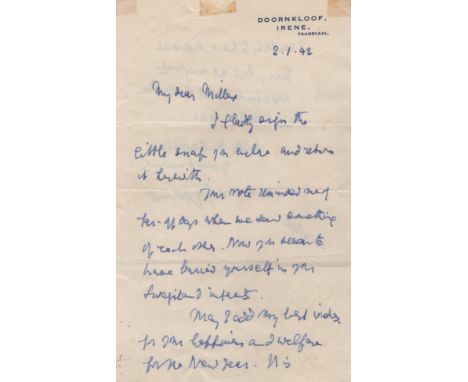 DOORNKLOOF,
IRENE,
TRANSVAAL
2.1.42
My dear Miller
I gladly sign the
little snap you enclose and return
it herewith.
Your note reminded me of
far-off days when we saw something
of each other. Now you seem to
have buried yourself in your
Swaziland interests.
May I add my best wishes
for your happiness and welfare
for the New Year. It is